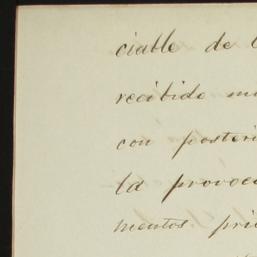 ciable de
recibido
con posteri
la provoca
mentos pri